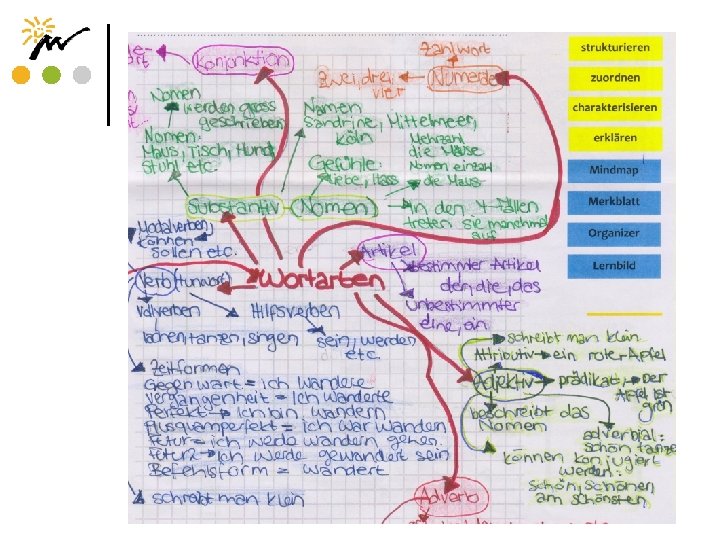 Konjunktion
Zahlwort
Numerale
zwei, drei,
vier
Nomen
werden gross
geschrieben
Nomen:
Maus, Tisch, Hund,
Stuhl etc.
Namen
Sandrine, Mittelmeer,
Köln
Gefühle:
Liebe, Hass
Mehrzahl
die Mäuse
Nomen einzahl
die Maus
Substantiv - Nomen
In den 4 Fällen
treten sie manchmal
auf
Modalverben,
können
sollen etc.
Artikel
bestimmter Artikel
der, die, das
unbestimmter
eine, ein
Wortarten
Verb (Tunwort)
Vollverben
lachen, tanzen, singen
Hilfsverben
sein, werden
etc.
Zeitformen
Gegenwart = ich wandere
Vergangenheit = ich wanderte
Perfekt → ich bin wandern
Plusquamperfekt = ich war wandern
Futur = ich werde wandern gehen.
Futur2 → ich werde gewandert sein
Befehlsform = wandert
schreibt man klein
schreibt man klein
Attributiv → ein roter Apfel
Adjektiv → prädikativ → Der
Apfel ist
grün
beschreibt das
Nomen
adverbial:
schön tanze
können konjugiert
werden:
schön, schöner,
am schönsten
Adverb
strukturieren
zuordnen
charakterisieren
erklären
Mindmap
Merkblatt
Organizer
Lernbild